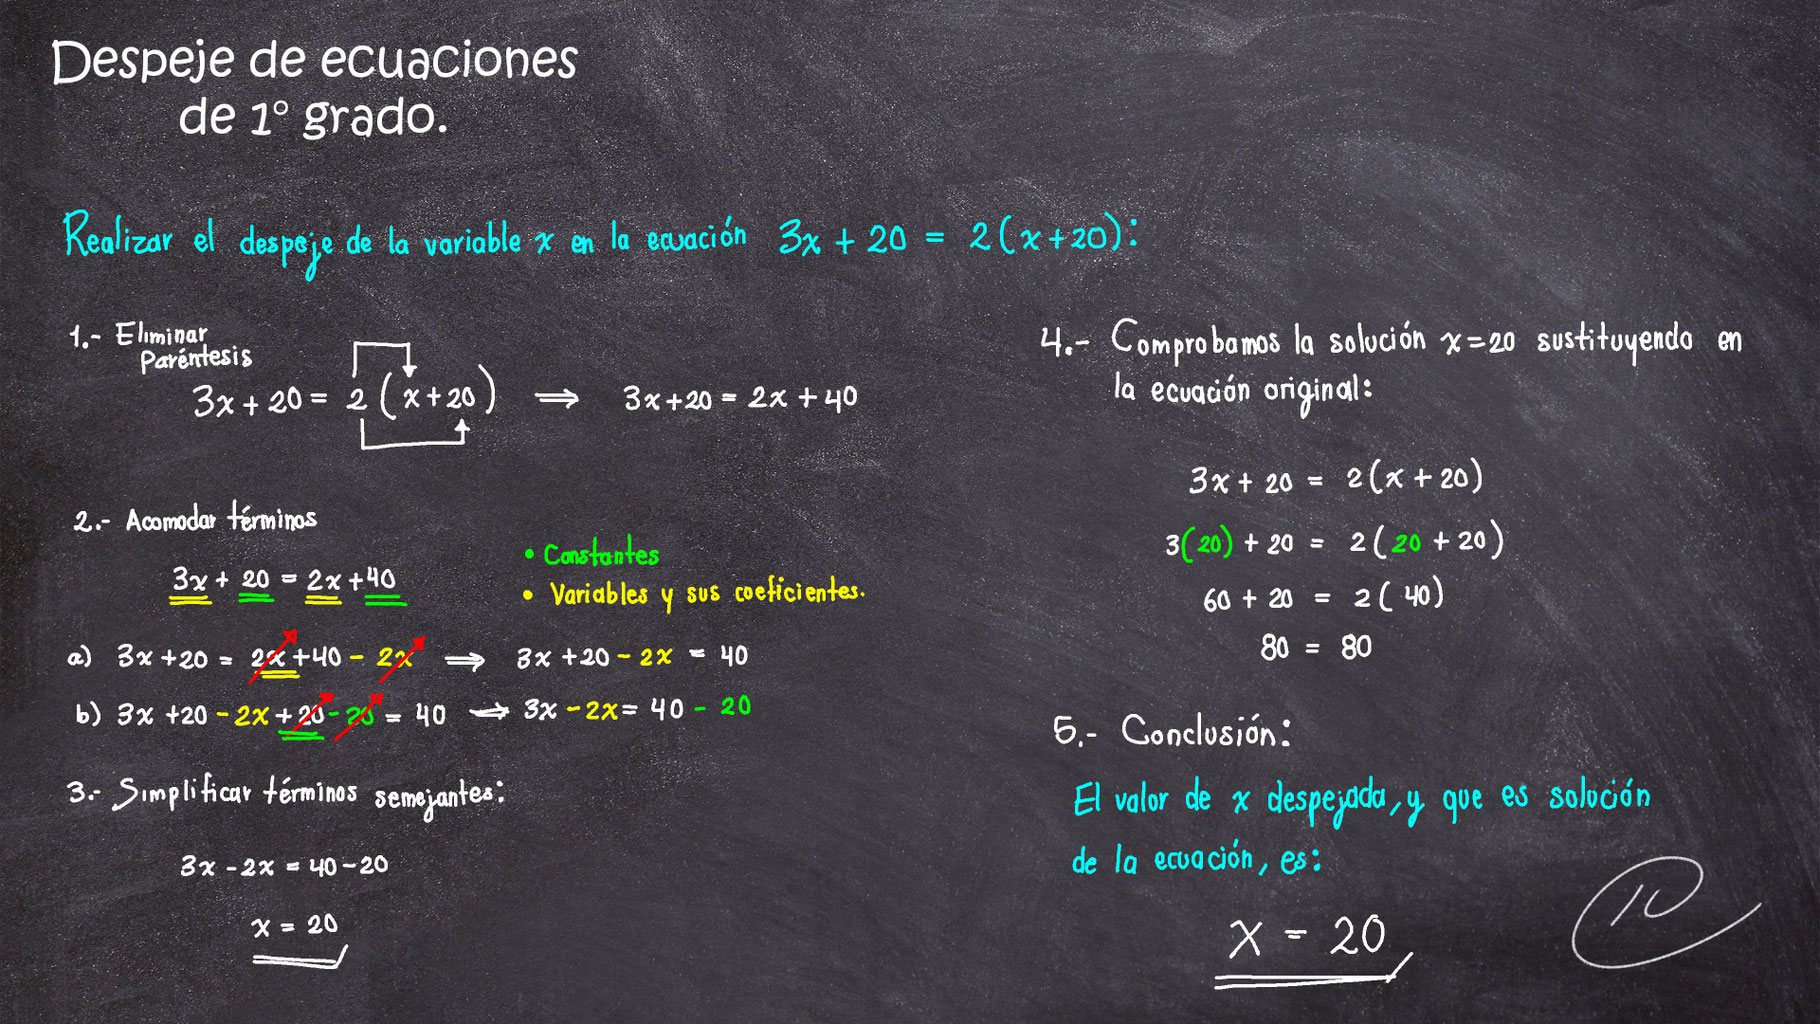 Despeje de ecuaciones
de 1° grado.
Realizar el despeje de la variable x en la ecuación 3x + 20 = 2(x+20):
1.- Eliminar
Paréntesis
3x + 20 = 2 (x+20) ⟹ 3x+20 = 2x + 40
2.- Acomodar términos
3x + 20 = 2x + 40
• Constantes
• Variables y sus coeficientes.
a) 3x +20 = 2x +40 - 2x ⟹ 3x +20 - 2x = 40
b) 3x +20 - 2x + 20 - 20 = 40 ⟹ 3x - 2x = 40 - 20
3.- Simplificar términos semejantes:
3x - 2x = 40 - 20
x = 20
4.- Comprobamos la solución x=20 sustituyendo en
la ecuación original:
3x + 20 = 2(x + 20)
3(20) + 20 = 2(20 + 20)
60 + 20 = 2(40)
80 = 80
5.- Conclusión:
El valor de x despejada, y que es solución
de la ecuación, es:
x = 20
10